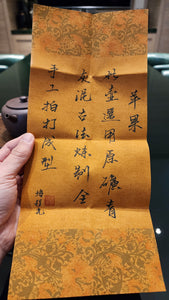 苹果
此壶选用原礦青
灰混古法炼制全
手工拍打成型